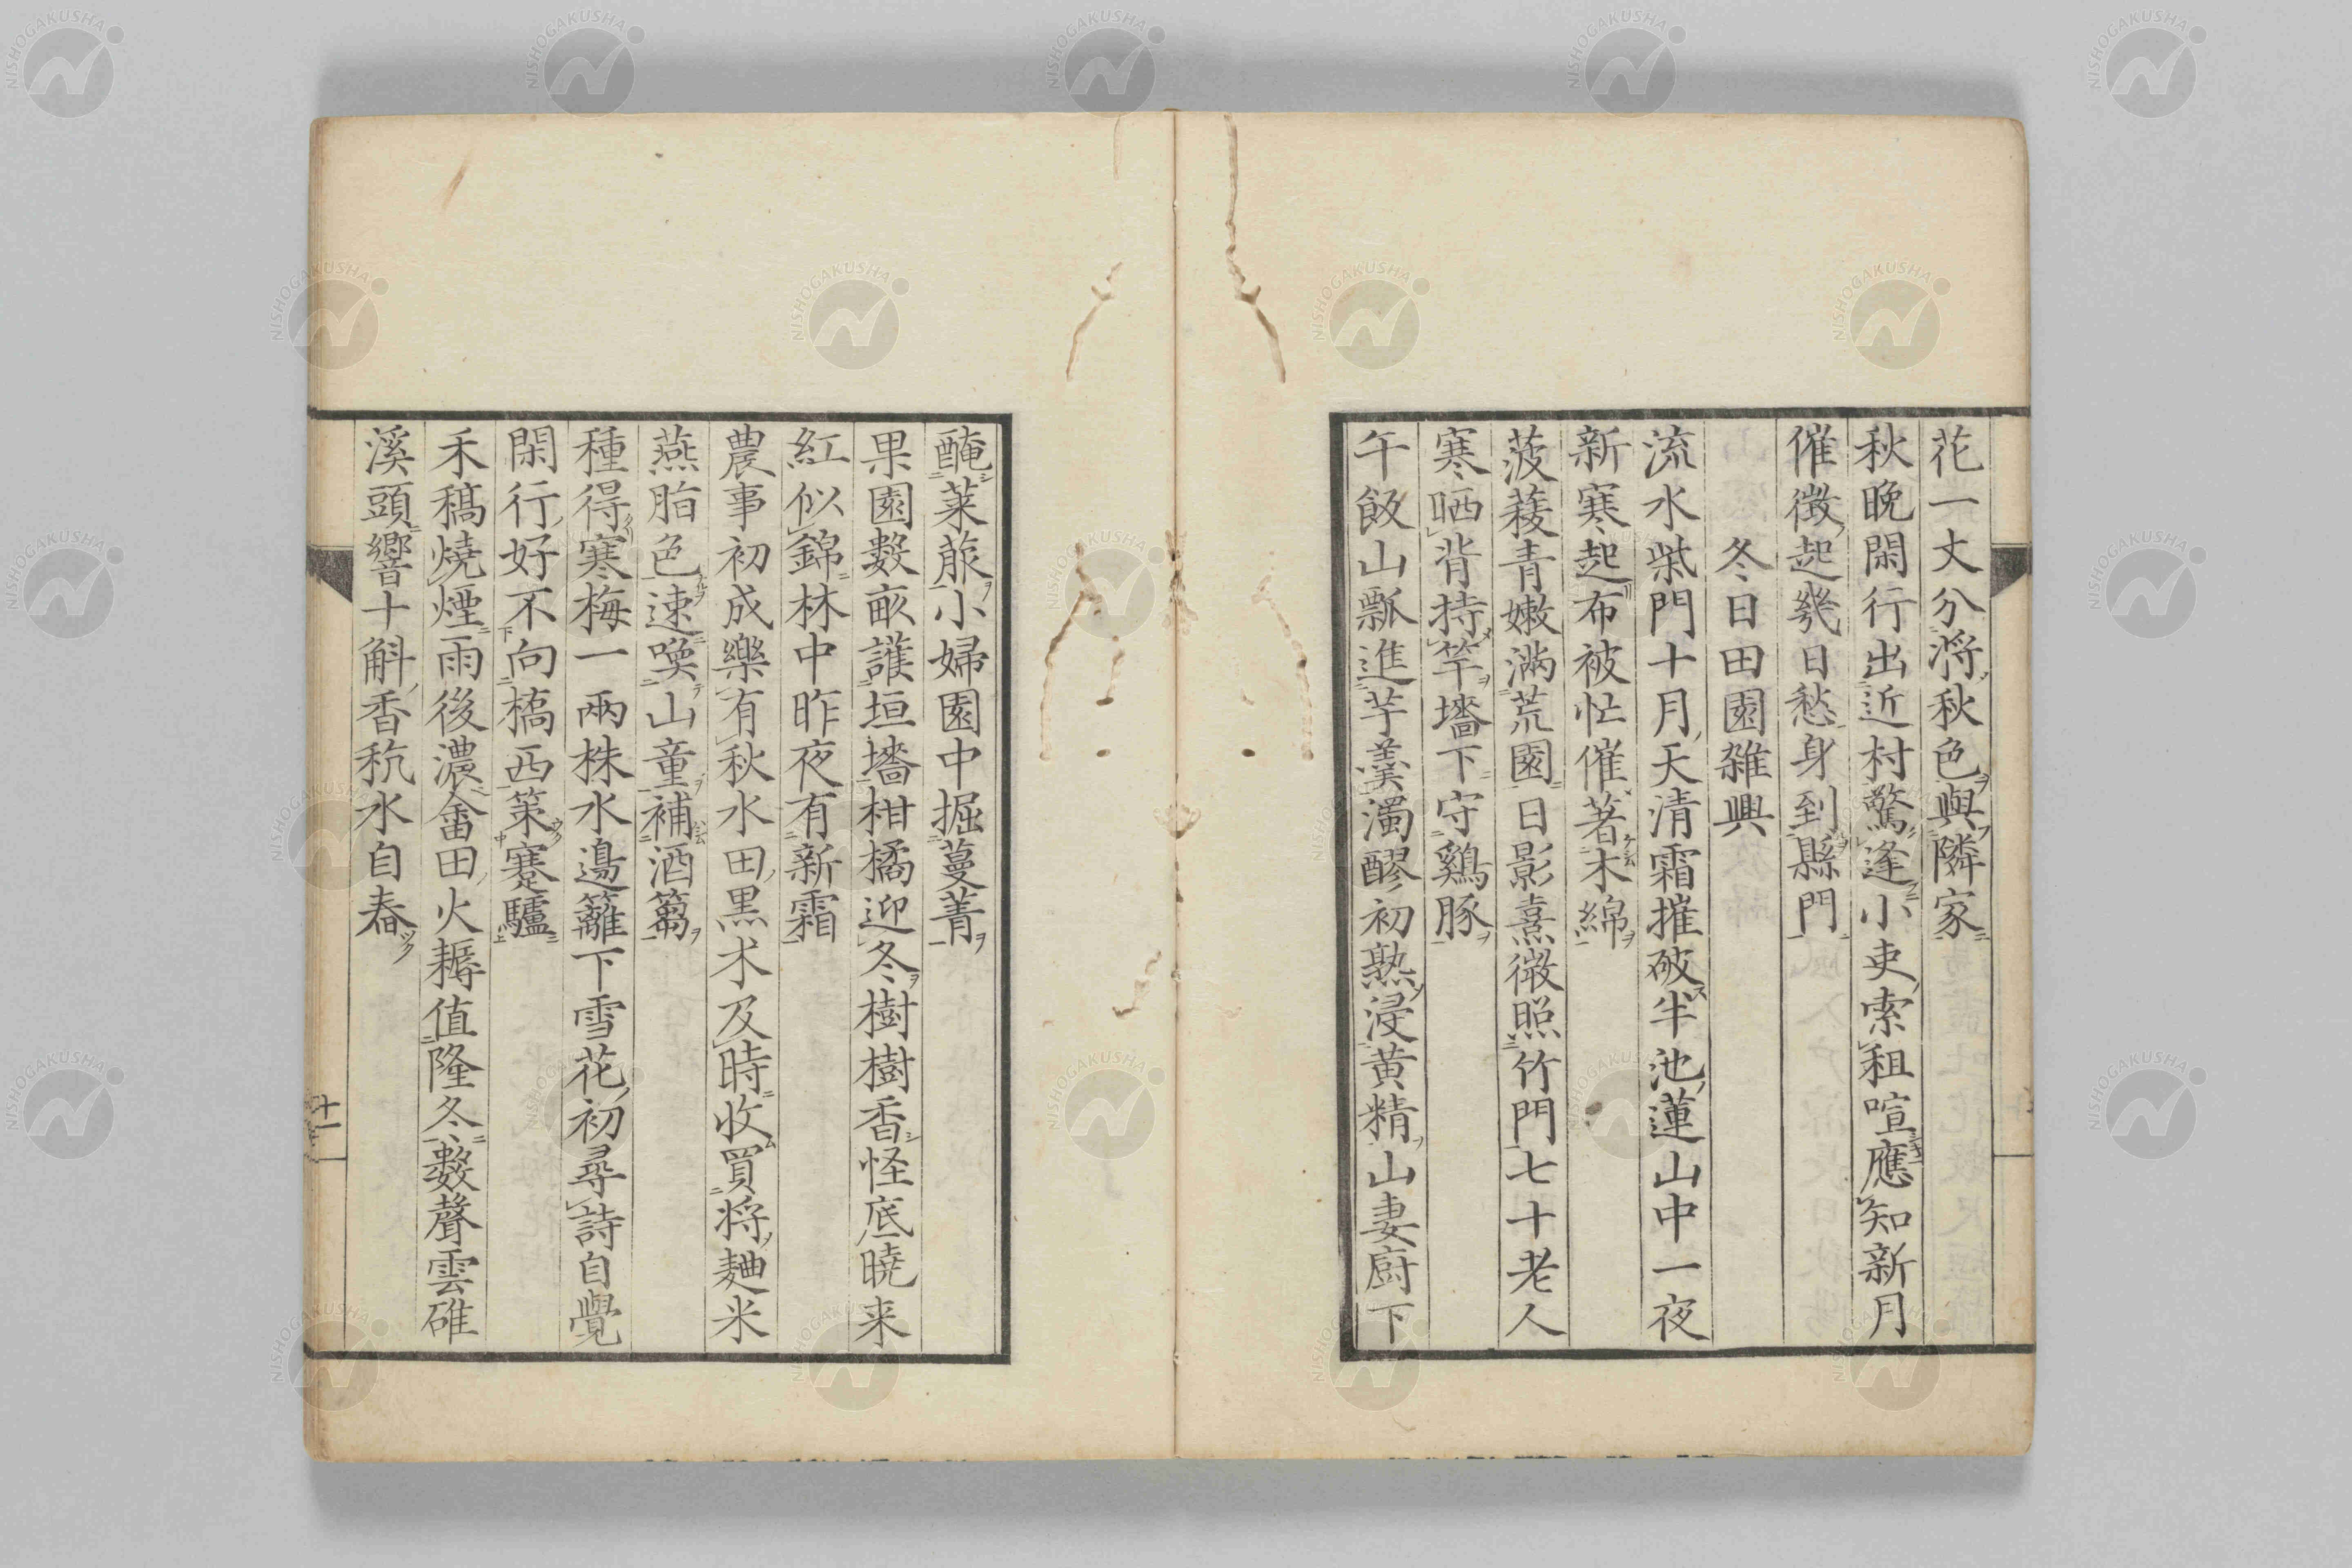 花一丈分將秋色與隣家
秋晩閑行出近村驚逢小吏索租喧應知新月
催徴起幾日愁身到縣門
冬日田園雑興
流水柴門十月天清霜摧破半池蓮山中一夜
新寒起布被忙催著木綿
菠薐青嫩満荒園日影熹微照竹門七十老人
寒晒背持竿墻下守鷄豚
午飯山瓢進芋羹濁醪初熟浸黄精山妻厨下
醃菜菔小婦園中掘蔓菁
果園数畝護垣墻柑橘迎冬樹樹香怪底暁来
紅似錦林中昨夜有新霜
農事初成樂有秋水田黒朮及時收買将麯米
燕脂色速喚山童補酒篘
種得寒梅一兩株水邉籬下雪花初尋詩自覺
閑行好不向橋西策蹇驢
禾稿燒煙雨後濃畬田火耨值隆冬数聲雲碓
溪頭響十斛香秔水自舂
十一
NISHOGAKUSHA